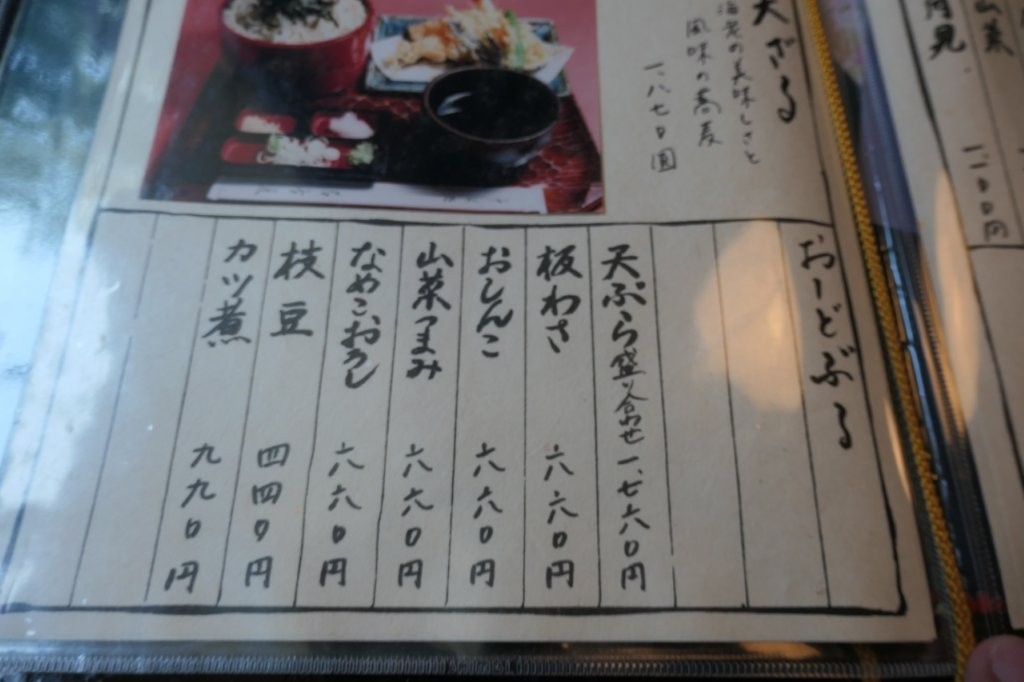 山菜
月見
一、一〇〇円
天ざる
海老の美味しさと
風味の蕎麦
一、八七〇圓
おーどぶる
天ぷら盛り合わせ 一、七六〇円
板わさ 六六〇円
おしんこ 六六〇円
山菜つまみ 六六〇円
なめこおろし 六六〇円
枝豆 四四〇円
カツ煮 九九〇円